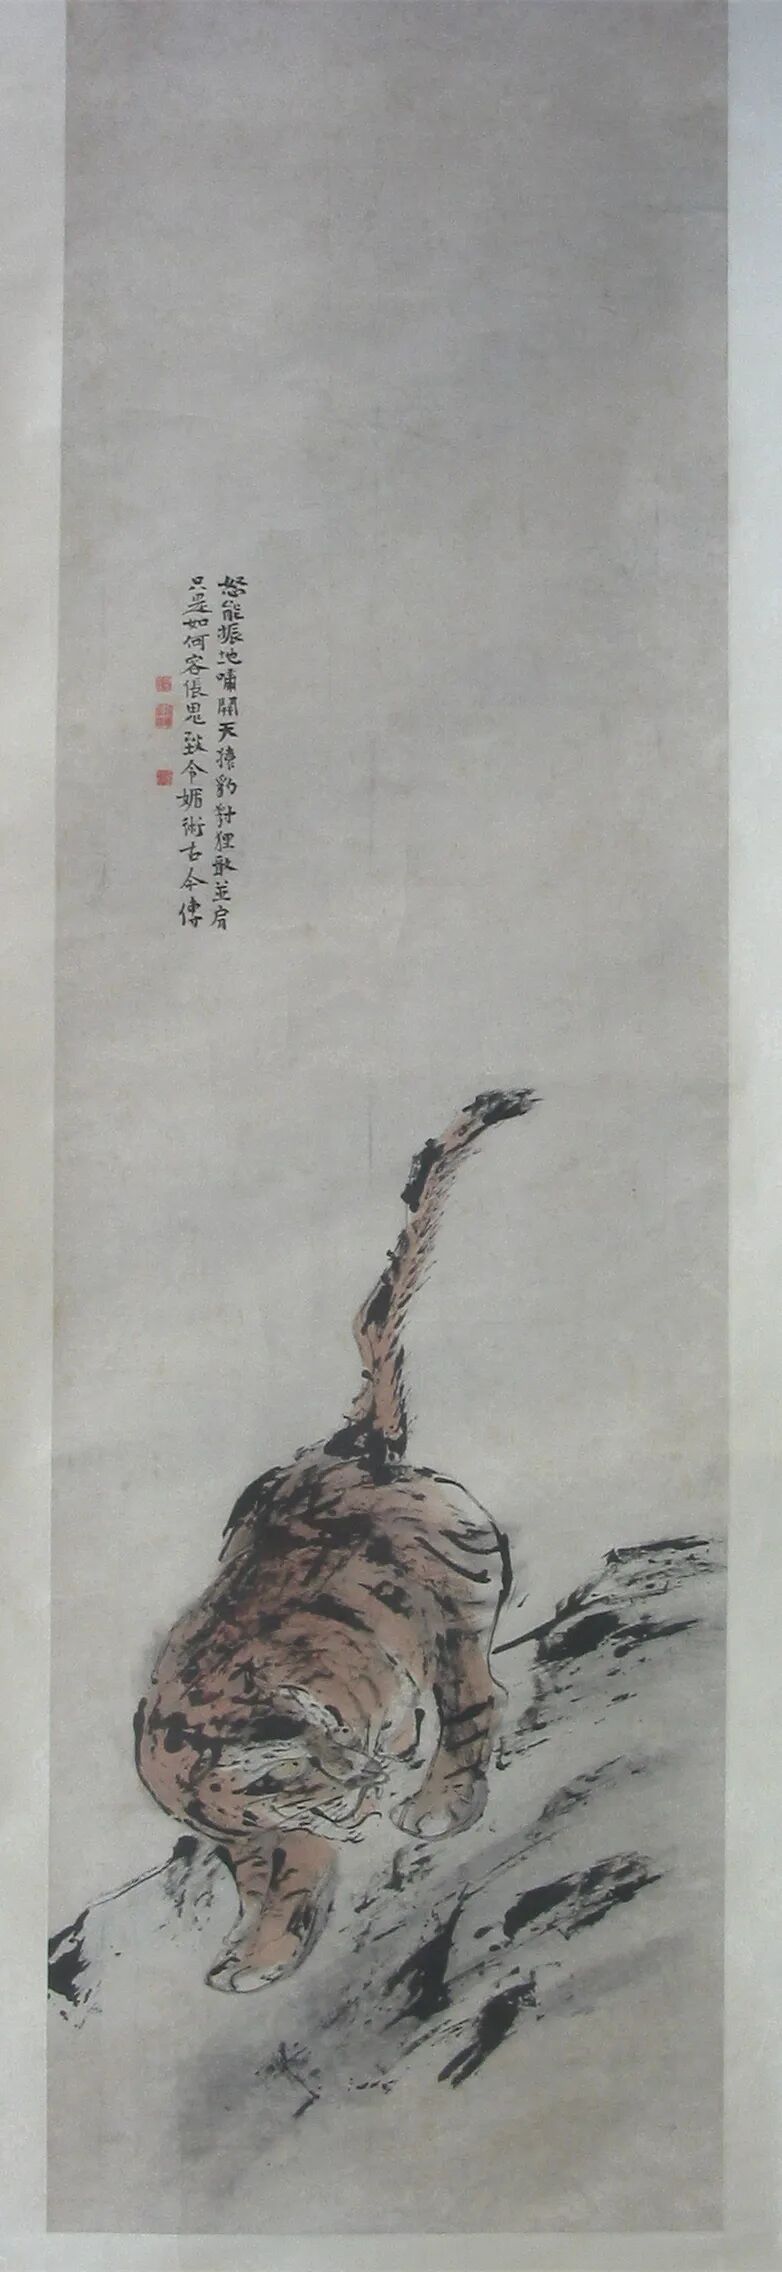 怒能振地嘯開天猿豹狸敢並肩
只是如何容倀鬼致令媚術古今傳